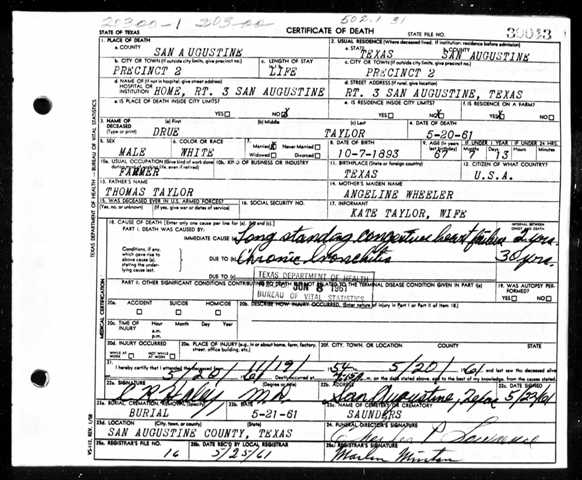 20300-1 203-00 502.1 31
STATE OF TEXAS CERTIFICATE OF DEATH STATE FILE NO.
1. PLACE OF DEATH 2. USUAL RESIDENCE (Where deceased lived. If institution: residence before admission)
a. COUNTY SAN AUGUSTINE a. STATE TEXAS b. COUNTY SAN AUGUSTINE
b. CITY OR TOWN (If outside city limits, give precinct no.) c. LENGTH OF STAY c. CITY OR TOWN (If outside city limits, give precinct no.)
PRECINCT 2 LIFE PRECINCT 2
d. NAME OF (If not in hospital, give street address) d. STREET ADDRESS (If rural, give location)
HOSPITAL OR INSTITUTION HOME, RT. 3 SAN AUGUSTINE RT. 3 SAN AUGUSTINE, TEXAS
e. IS PLACE OF DEATH INSIDE CITY LIMITS? e. IS RESIDENCE INSIDE CITY LIMITS? f. IS RESIDENCE ON A FARM?
YES NO X YES NO X YES X NO
3. NAME OF DECEASED (a) First (b) Middle (c) Last 4. DATE OF DEATH
(Type or print) DRUE TAYLOR 5-20-61
5. SEX 6. COLOR OR RACE 7. Married X Never Married 8. DATE OF BIRTH 9. AGE (In years last birthday) IF UNDER 1 YEAR IF UNDER 24 HRS.
MALE WHITE Widowed Divorced 10-7-1893 67 Months 7 Days 13 Hours Min.
10a. USUAL OCCUPATION (Give kind of work done during most of working life, even if retired) 10b. KIND OF BUSINESS OR INDUSTRY 11. BIRTHPLACE (State or foreign country) 12. CITIZEN OF WHAT COUNTRY?
FAMMER TEXAS U.S.A.
13. FATHER'S NAME 14. MOTHER'S MAIDEN NAME
THOMAS TAYLOR ANGELINE WHEELER
15. WAS DECEASED EVER IN U.S. ARMED FORCES? 16. SOCIAL SECURITY NO. 17. INFORMANT
(Yes, no, or unknown) (If yes, give war or dates of service) KATE TAYLOR, WIFE
18. CAUSE OF DEATH (Enter only one cause per line for (a), (b), and (c).) INTERVAL BETWEEN ONSET AND DEATH
PART I. DEATH WAS CAUSED BY:
IMMEDIATE CAUSE (a) Long standing congestive heart failure 2 yrs.
Conditions, if any, which gave rise to above cause (a), stating the underlying cause last. DUE TO (b) Chronic bronchitis 30 yrs.
DUE TO (c)
TEXAS DEPARTMENT OF HEALTH
REC'D JUN 8 1961
BUREAU OF VITAL STATISTICS
PART II. OTHER SIGNIFICANT CONDITIONS CONTRIBUTING TO DEATH BUT NOT RELATED TO THE TERMINAL DISEASE CONDITION GIVEN IN PART I(a) 19. WAS AUTOPSY PERFORMED?
YES NO
20a. ACCIDENT SUICIDE HOMICIDE 20b. DESCRIBE HOW INJURY OCCURRED. (Enter nature of injury in Part I or Part II of item 18.)
20c. TIME OF INJURY Hour Month Day Year
a.m.
p.m.
20d. INJURY OCCURRED 20e. PLACE OF INJURY (e.g., in or about home, farm, factory, street, office building, etc.) 20f. CITY, TOWN, OR LOCATION COUNTY STATE
WHILE AT WORK NOT WHILE AT WORK
21. I hereby certify that I attended the deceased from 11/19/ 54 5/20/ 61 and last saw the deceased alive
5/20/ 61 Death occurred at on the date stated above, and to the best of my knowledge, from the causes stated.
22a. SIGNATURE 22b. ADDRESS 22c. DATE SIGNED
M.D. San Augustine, Texas 5/23/61
23a. BURIAL, CREMATION, REMOVAL (Specify) 23b. DATE 23c. NAME OF CEMETERY OR CREMATORY
BURIAL 5-21-61 SAUNDERS
23d. LOCATION (City, town, or county) (State) 24. FUNERAL DIRECTOR'S SIGNATURE
SAN AUGUSTINE COUNTY, TEXAS
25a. REGISTRAR'S FILE NO. 25b. DATE REC'D BY LOCAL REGISTRAR 25c. REGISTRAR'S SIGNATURE
16 5/25/61
TEXAS DEPARTMENT OF HEALTH - BUREAU OF VITAL STATISTICS
MEDICAL CERTIFICATION